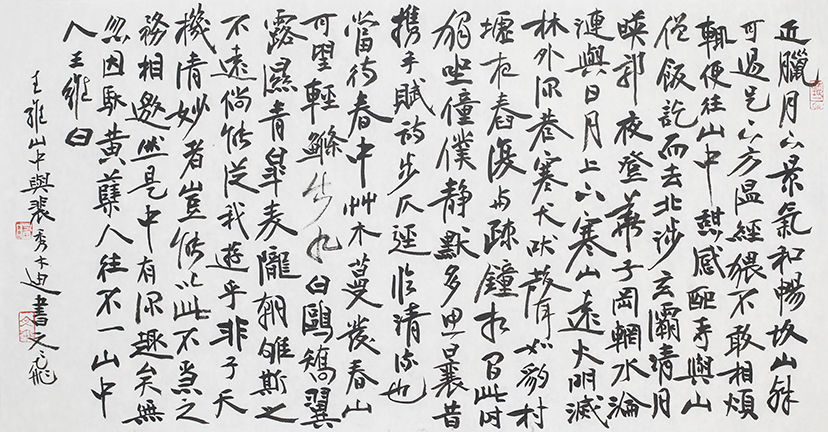 近臘月下景氣和暢故山殊
可過足下方溫經猥不敢相煩
輒便往山中憩感配寺與山
僧飯訖而去北涉玄灞清月
映郭夜登華子岡輞水淪
漣與日月上下寒山遠火明滅
林外深巷寒犬吠聲如豹村
墟夜舂復与疎鐘相間此时
獨坐僮僕靜默多思曩昔
携手賦詩步仄逕臨清流也
當待春中艸木蔓發春山
可望輕鰷出水白鷗矯翼
露濕青皋麦隴朝雊斯之
不遠倘能從我遊乎非子天
機清妙者豈能以此不急之
務相邀然是中有深趣矣無
忽因馱黃蘖人往不一山中
人王維白
王維山中與裴秀才迪書 文飛